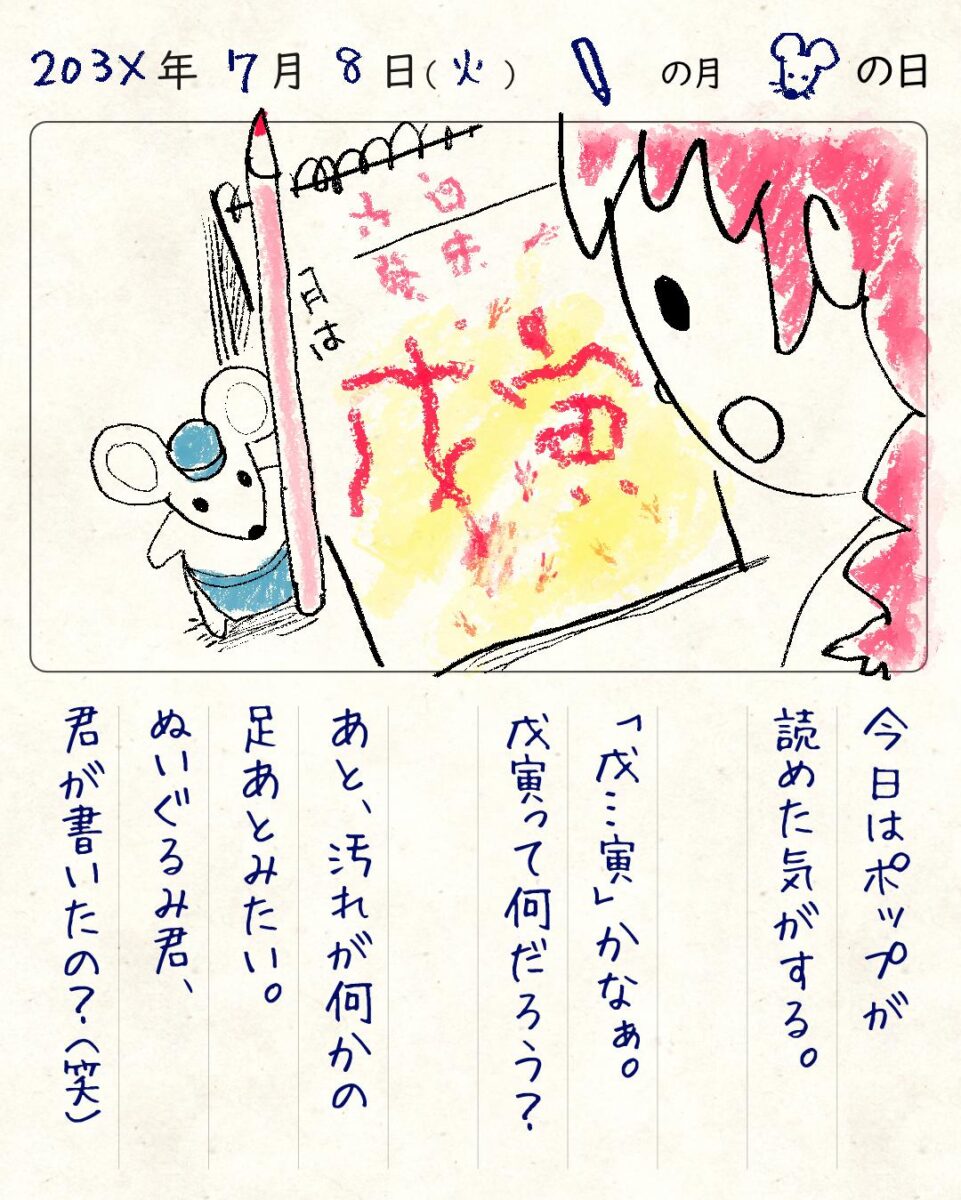 203X年 7月 8日(火) の月 の日
今日は
戊寅
今日はポップが
読めた気がする。
「戊…寅」かなぁ。
戊寅って何だろう？
あと、汚れが何かの
足あとみたい。
ぬいぐるみ君、
君が書いたの？(笑)